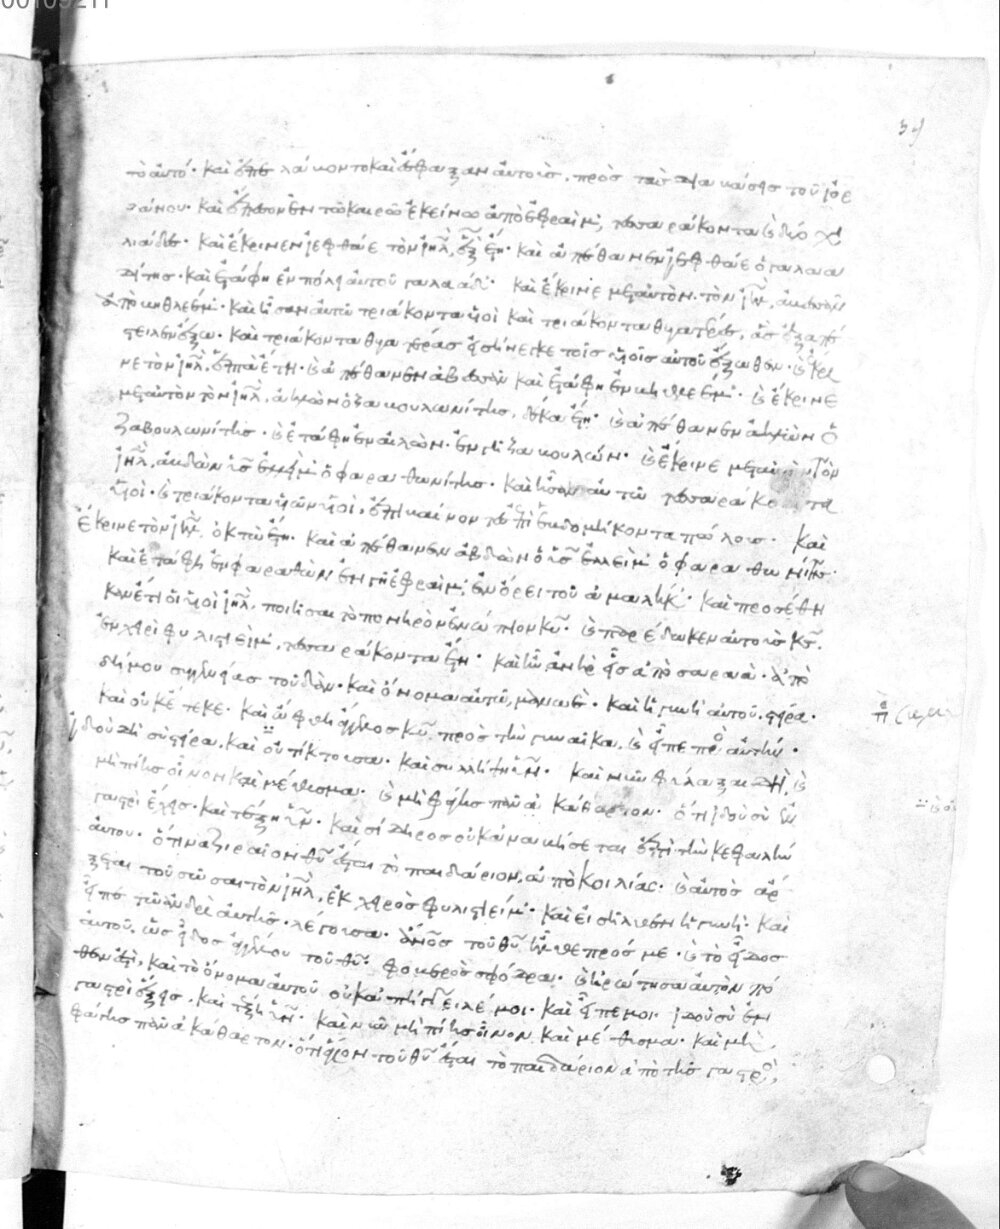 τὸ αὐτό· καὶ λάκοντο καὶ ἔσφαξαν αὐτοὺς, πρὸς ταῖς διαβάσεσι τοῦ ἰορ
δάνου· καὶ ἔπεσον ἐν τῶ καιρῶ ἐκείνω ἀπὸ ἐφραὶμ, τεσσαράκοντα δύο χι
λιάδες· καὶ ἔκρινεν ἰεφθάε τὸν ἰηλ, ἓξ ἔτη· καὶ ἀπέθανεν ἰεφθάε ὁ γαλααδ
δίτης· καὶ ἐτάφη ἐν πόλει αὐτοῦ γαλαάδ· καὶ ἔκρινε μετ αὐτὸν τὸν ἰηλ,
ἀπο βηθλεέμ· καὶ ἦσαν αὐτῶ τριάκοντα υἱοὶ καὶ τριάκοντα θυγατέρες, ἃς ἐξαπέ
στειλεν ἔξω· καὶ τριάκοντα θυγατέρας εἰσήνεγκε τοῖς υἱοῖς αὐτοῦ ἔξωθεν· καὶ ἔκρι
νε τὸν ἰηλ, ἑπτὰ ἔτη· καὶ ἀπέθανεν καὶ ἐτάφη ἐν βηθλεέμ· καὶ ἔκρινε
μετ αὐτὸν τὸν ἰηλ, αἰλὼν ὁ ζαβουλωνίτης, δέκα ἔτη· καὶ ἀπέθανεν αἰλὼν ὁ
ζαβουλωνίτης· καὶ ἐτάφη ἐν αἰλὼν· ἐν γῆ ζαβουλών· καὶ ἔκρινε μετ αὐτὸν τὸν
ἰηλ, ἀβδὼν ὁ φαραθωνίτης· καὶ ἦσαν αὐτῶ τεσσαράκοντα
υἱοὶ· καὶ τριάκοντα υἱῶν υἱοὶ, ἐπιβαίνοντες ἐπὶ ἑβδομήκοντα πώλους· καὶ
ἔκρινε τὸν ἰηλ ὀκτὼ ἔτη· καὶ ἀπέθανεν ἀβδὼν ὁ ὁ φαραθωνίτης·
καὶ ἐτάφη ἐν φαραθὼν ἐν γῆ ἐφραὶμ· ἐν ὄρει τοῦ ἀμαλήκ· καὶ προσέθεν
το ἔτι οἱ υἱοὶ ἰηλ, ποιῆσαι τὸ πονηρὸν ἐνώπιον κυ· καὶ παρέδωκεν αὐτοὺς κς
ἐν χειρὶ φυλιστιεὶμ, τεσσαράκοντα ἔτη· καὶ ἦν ἀνὴρ εἷς ἀπὸ σαραά· ἀπὸ
δήμου συγγενείας τοῦ δάν· καὶ ὄνομα αὐτῶ, μανωέ· καὶ ἡ γυνὴ αὐτοῦ, στεῖρα·
καὶ οὐκ ἔτεκε· καὶ ὤφθη ἄγγελος κυ πρὸς τὴν γυναῖκα, καὶ εἶπε πρὸ αὐτήν·
ἰδοὺ δὴ σὺ στεῖρα, καὶ οὐ τίκτουσα· καὶ συλλήψη υν· καὶ νῦν φύλαξαι δὴ, καὶ
μὴ πίης οἶνον καὶ μέθυσμα· καὶ μὴ φάγης πᾶν ἀκάθαρτον· ὅτι ἰδοὺ σὺ ἐν
γαστρὶ ἕξεις· καὶ τέξη υν· καὶ σίδηρος οὐκ ἀναβήσεται ἐπὶ τὴν κεφαλὴν
αὐτοῦ· ὅτι ναζιραῖον θυ ἔσται τὸ παιδάριον, ἀπὸ κοιλίας· καὶ αὐτὸς ἄρ
ξεται τοῦ σῶσαι τὸν ἰηλ, ἐκ χειρὸς φυλιστιείμ· καὶ εἰσῆλθεν ἡ γυνὴ· καὶ
εἶπε τῶ ἀνδρὶ αὐτῆς, λέγουσα· ἄνος τοῦ θυ ἦλθε πρός με· καὶ τὸ εἶδος
αὐτοῦ, ὡς εἶδος ἀγγέλου τοῦ θυ· φοβερὸς σφόδρα· καὶ ἠρώτησα αὐτὸν πό
θεν ἐστί, καὶ τὸ ὄνομα αὐτοῦ οὐκ ἀπήγγειλέ μοι· καὶ εἶπέ μοι· ἰδοὺ σὺ ἐν
γαστρὶ ἕξεις· καὶ τέξη υν· καὶ νῦν μὴ πίης οἶνον καὶ μέθυσμα· καὶ μὴ
φάγης πᾶν ἀκάθαρτον· ὅτι ἅγιον τοῦ θυ ἔσται τὸ παιδάριον ἀπὸ τῆς γαστρὸ